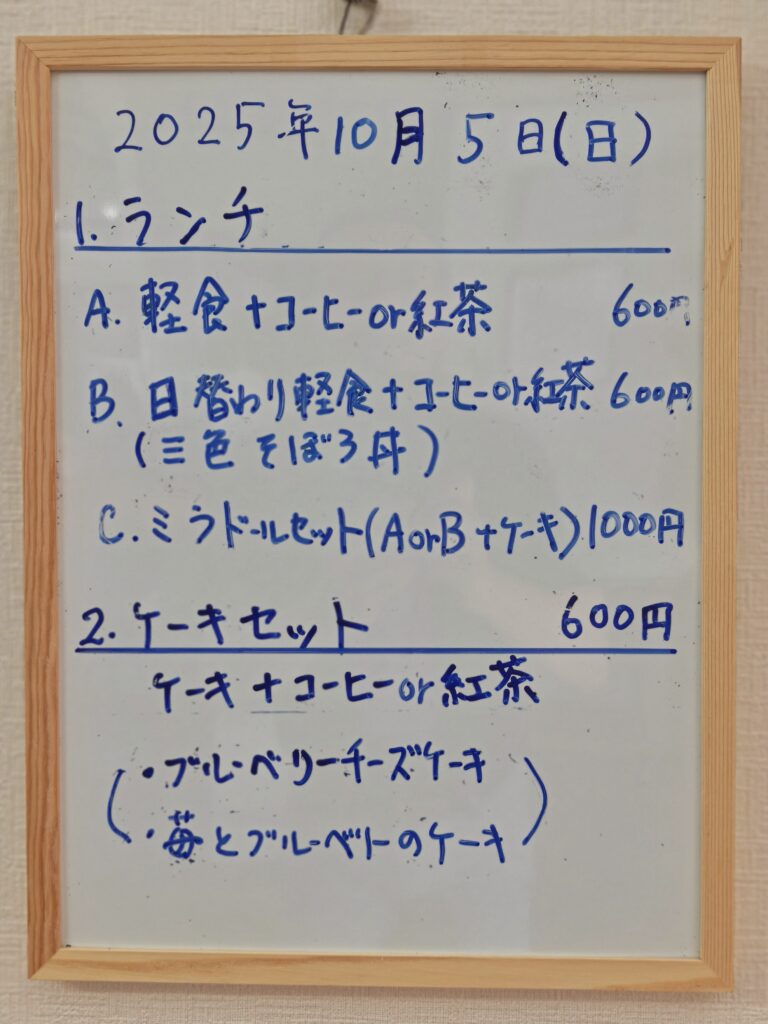 2025年10月5日(日)
1.ランチ
A.軽食+コーヒーor紅茶 600円
B.日替わり軽食+コーヒーor紅茶 600円
(三色そぼろ丼)
C.ミラドールセット(AorB+ケーキ)1000円
2.ケーキセット 600円
ケーキ+コーヒーor紅茶
・ブルーベリーチーズケーキ
・苺とブルーベリーのケーキ